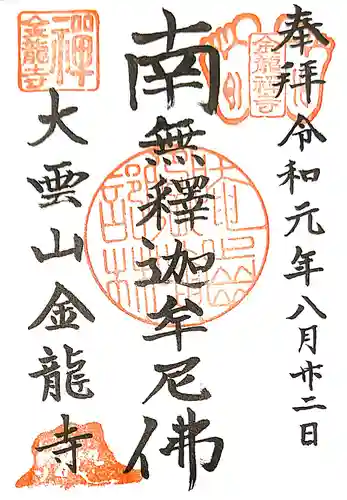 奉拝
令和元年八月廿二日
金龍禅寺
南無釋迦牟尼佛
禅
金龍寺
大雲山金龍寺